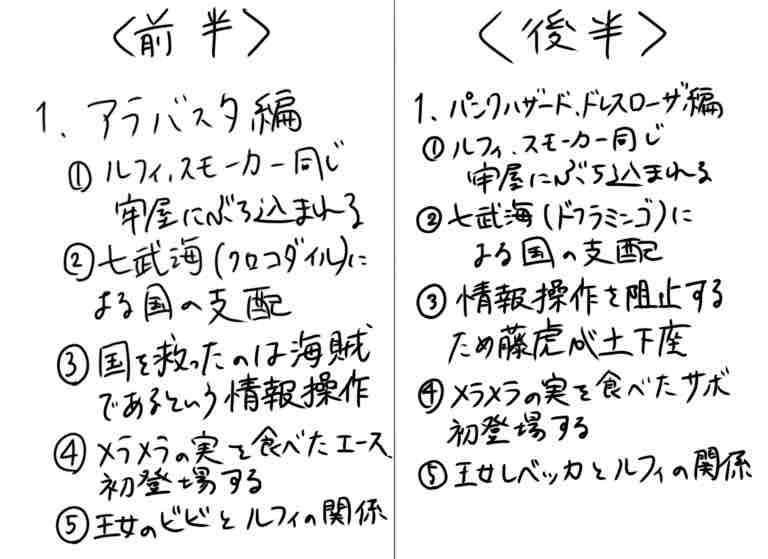 <前半>
1、アラバスタ編
①ルフィ、スモーカー同じ
牢屋にぶち込まれる
②七武海(クロコダイル)に
よる国の支配
③国を救ったのは海賊
であるという情報操作
④メラメラの実を食べたエース
初登場する
⑤王女のビビとルフィの関係
<後半>
1、パンクハザード、ドレスローザ編
①ルフィ、スモーカー同じ
牢屋にぶち込まれる
②七武海(ドフラミンゴ)に
よる国の支配
③情報操作を阻止する
ため藤虎が土下座
④メラメラの実を食べたサボ
初登場する
⑤王女レベッカとルフィの関係